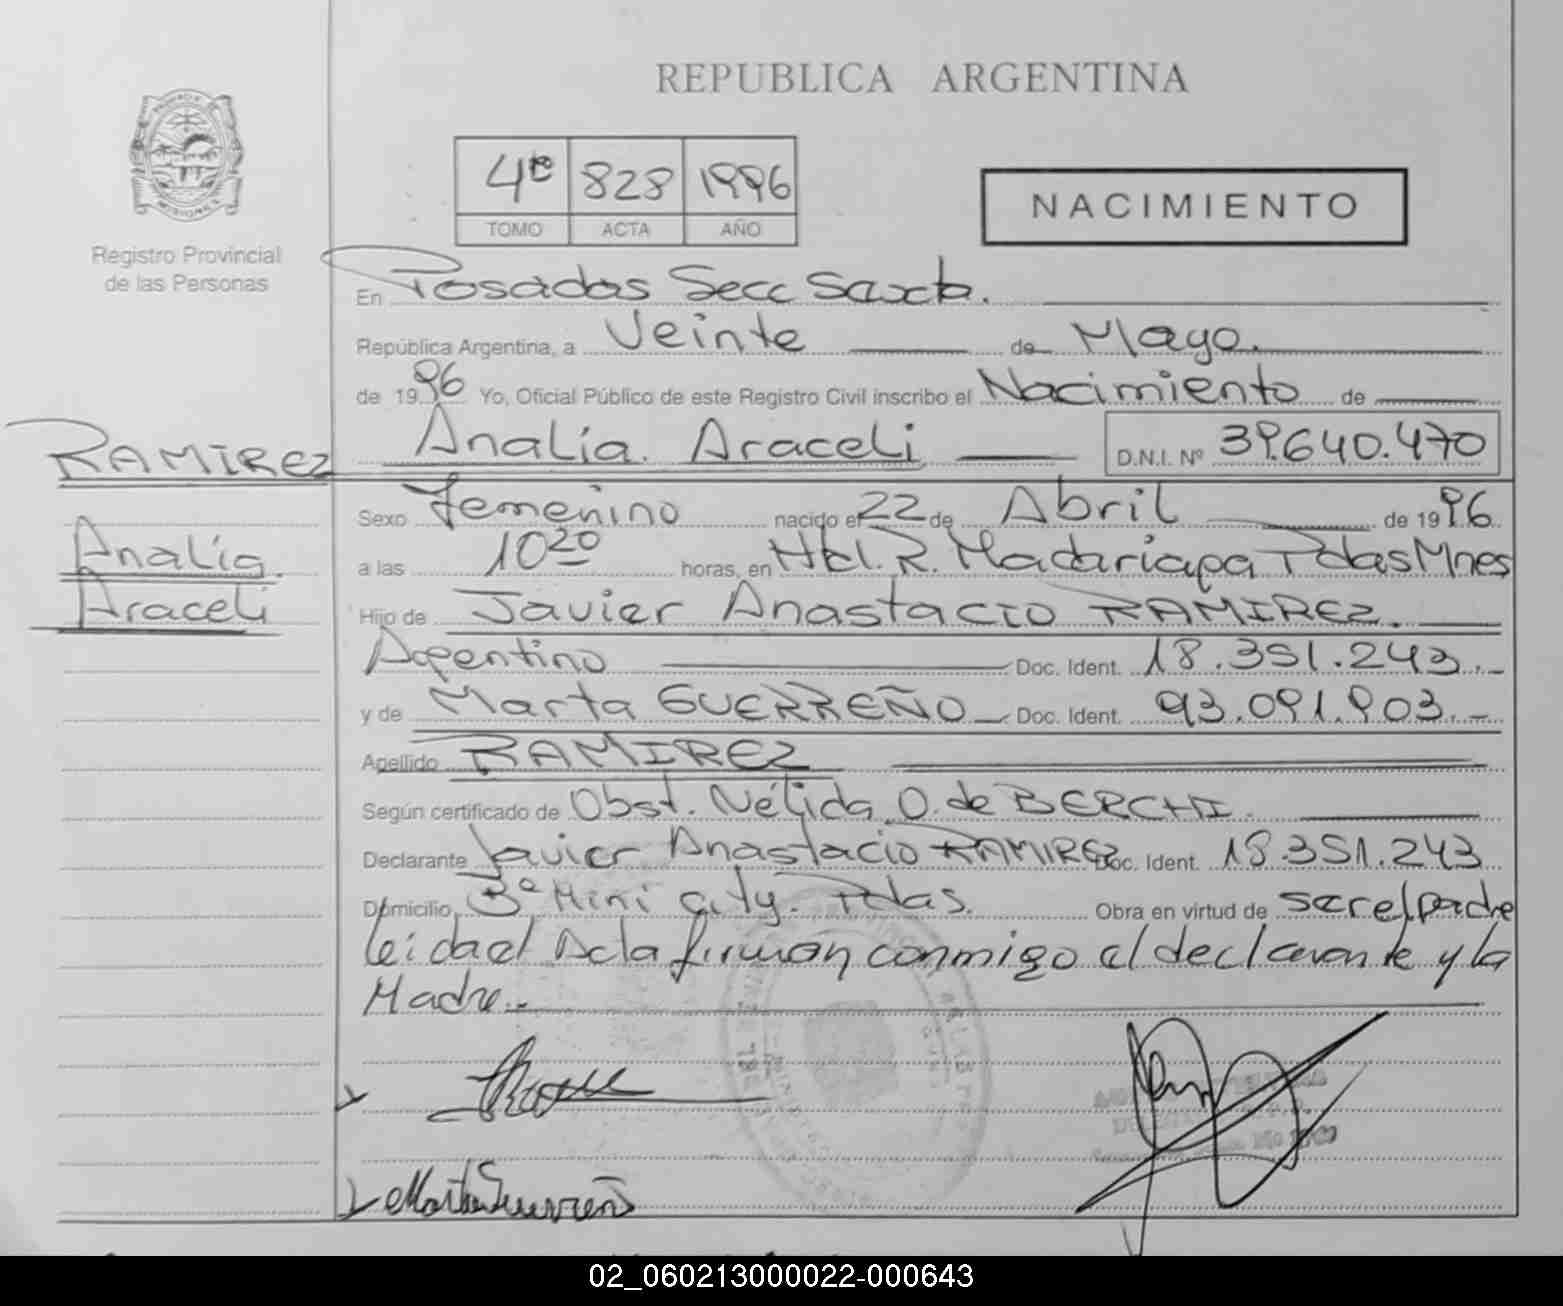 REPUBLICA ARGENTINA
4to 828 1996
TOMO ACTA AÑO
NACIMIENTO
Registro Provincial
de las Personas
En Posadas Secc Sexta.
República Argentina, a Veinte de Mayo.
de 1996 Yo, Oficial Público de este Registro Civil inscribo el Nacimiento de
RAMIREZ Analía. Araceli D.N.I. Nº 39.640.470
Analía.
Araceli
Sexo femenino nacido el 22 de Abril de 1996
a las 10 20 horas, en Htal. R. Madariaga Pdas Mnes
Hijo de Javier Anastacio RAMIREZ.
Argentino Doc. Ident. 18.351.243.-
y de Marta GUERREÑO Doc. Ident. 93.091.903.-
Apellido RAMIREZ
Según certificado de Obst. Nélida O. de BERCHI.
Declarante Javier Anastacio RAMIREZ Doc. Ident. 18.351.243
Domicilio Bº Mini city. Pdas. Obra en virtud de ser el padre
leida el Acta firman conmigo el declarante y la
Madre.-
Marta Guerreño
02_060213000022-000643